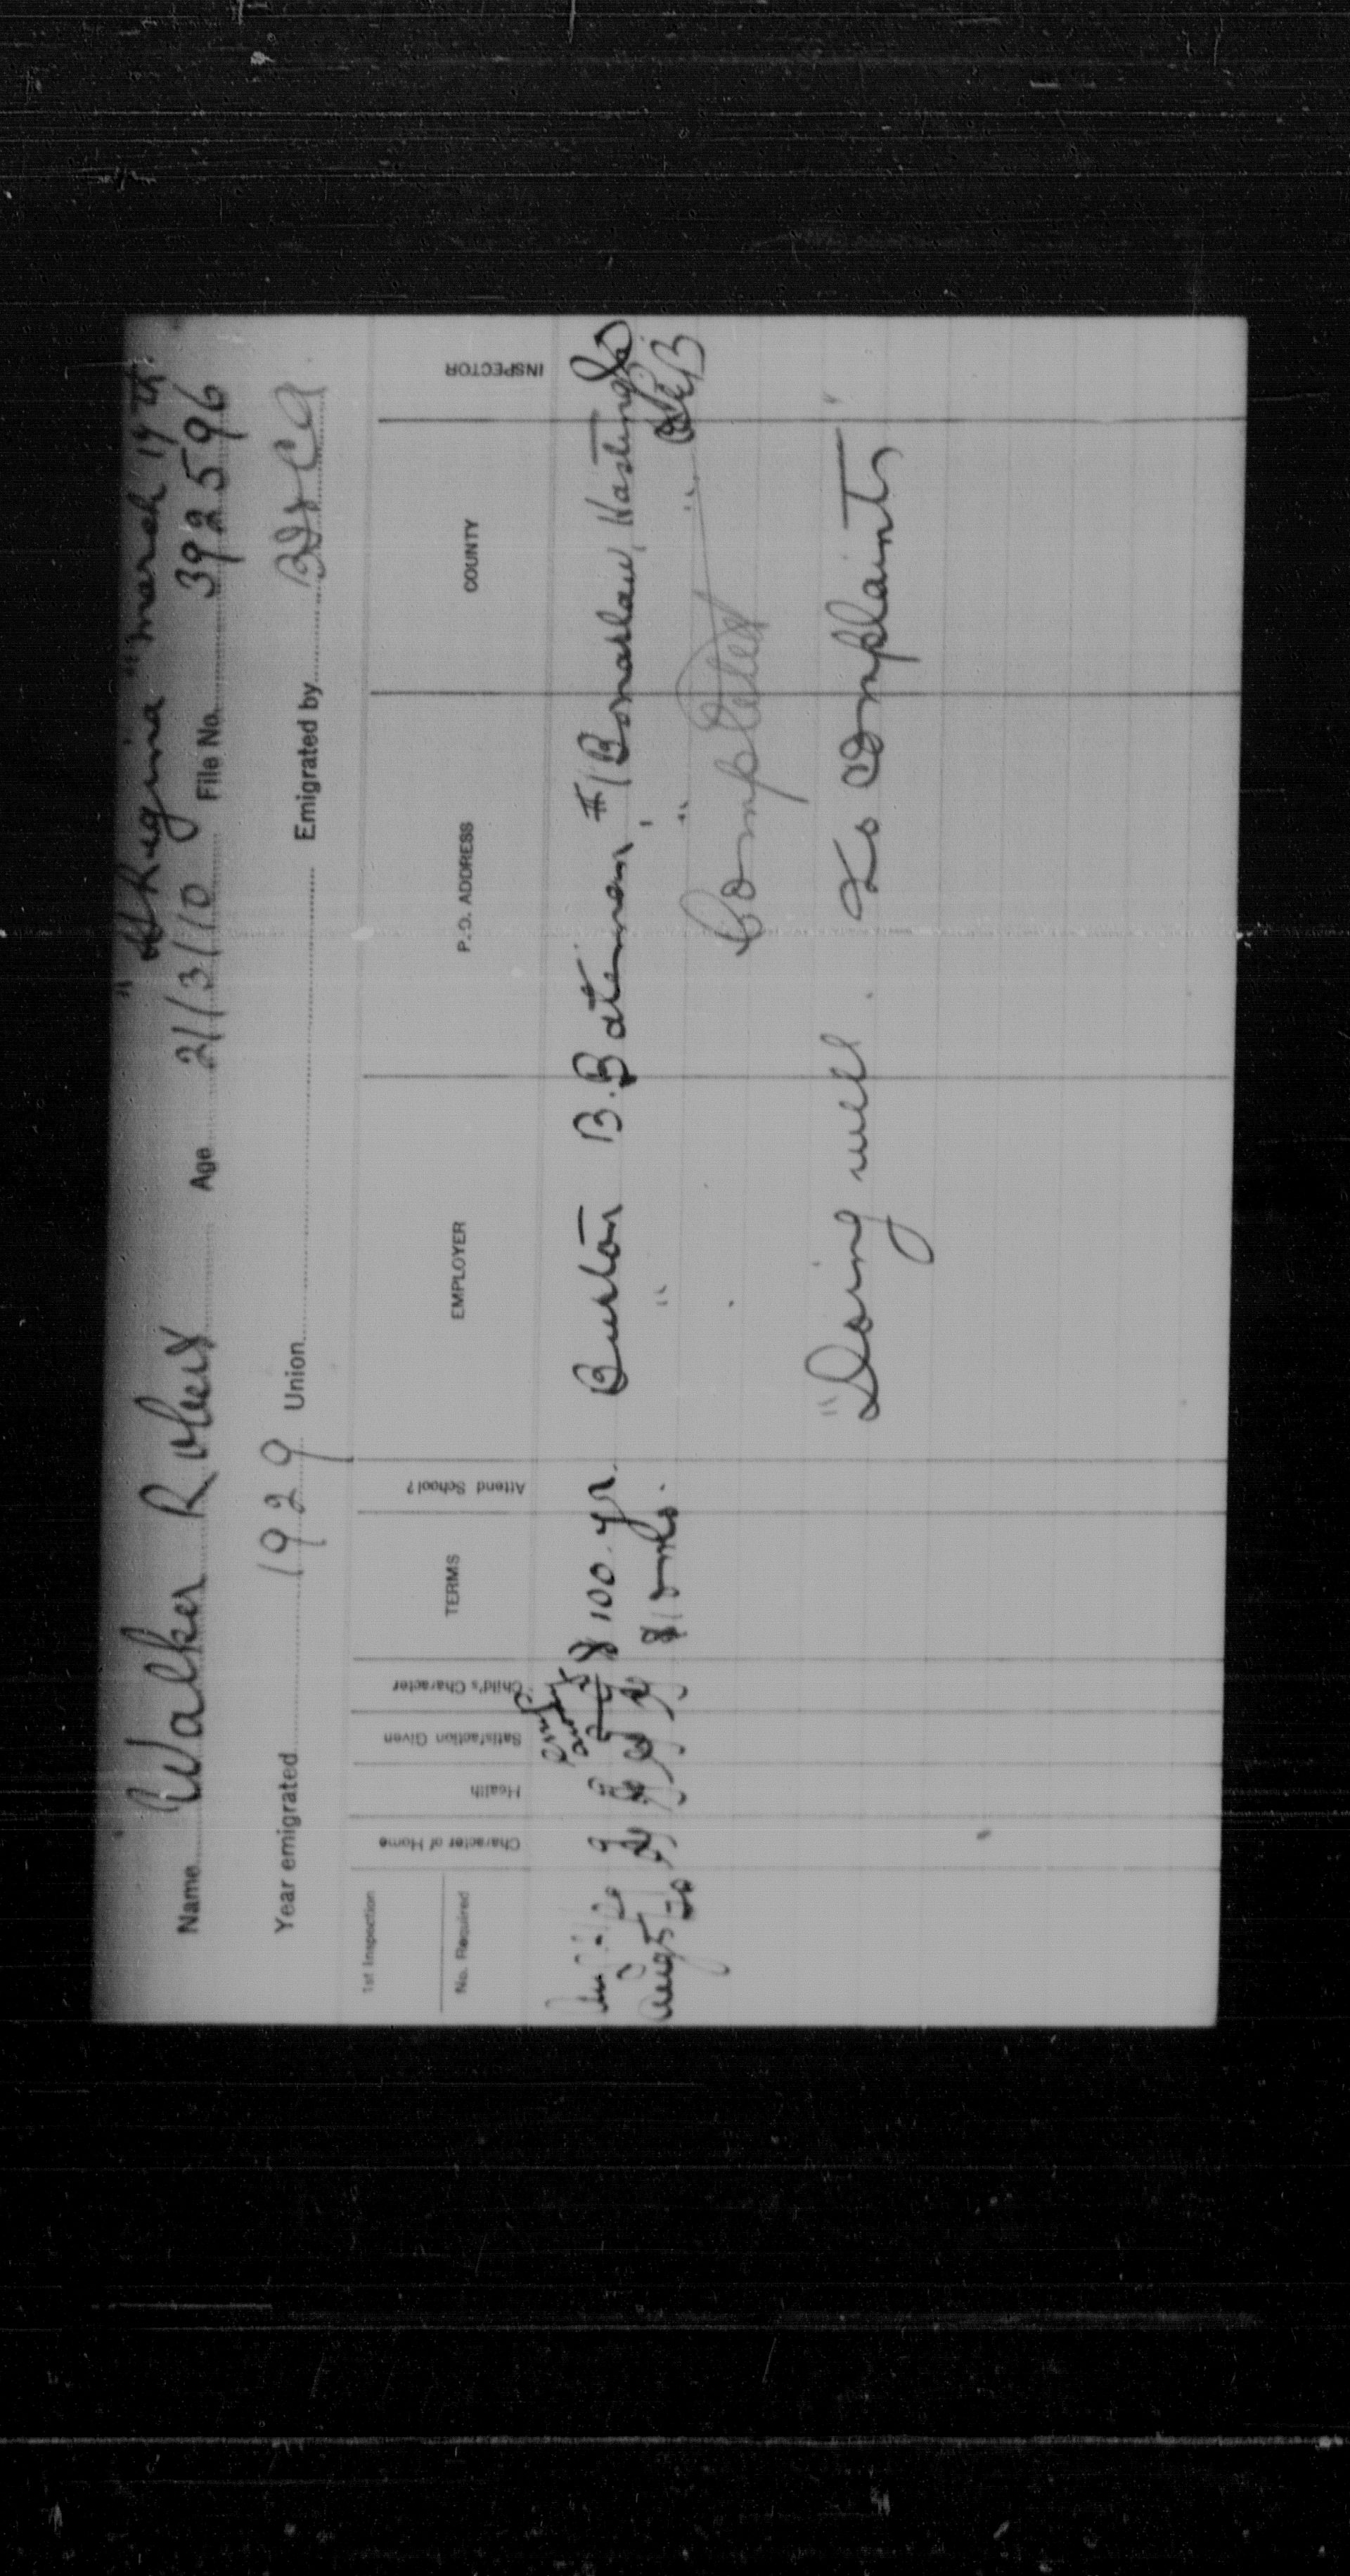 " Regina " March 19th
Name Walker Robert Age 21/3/10 File No. 392596
Year emigrated 1929 Union Emigrated by
1st Inspection
No. Required
Character of Home
Health
Satisfaction Given
Child's Character
TERMS
Attend School?
EMPLOYER
P.O. ADDRESS
COUNTY
INSPECTOR
$100. yr. Burton B. Bateman, #1 Bonarlaw, Hastings
Aug 5/30 G G G G $10 mth. " " "
Completed
"Doing well. No complaints"